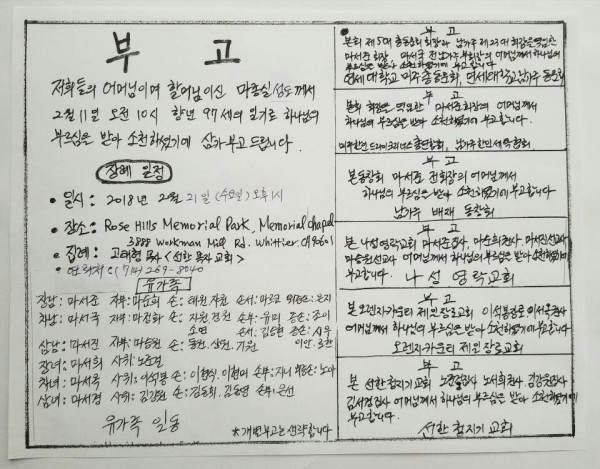 부 고
저희들의 어머님이며 할머님이신 마춘실 성도께서
2월 11일 오전 10시 향년 97세의 일기로 하나님의
부르심을 받아 소천하셨기에 삼가 부고 드립니다.
장례 일정
• 일시 : 2018년 2월 21일 (수요일) 오후 1시
• 장소 : Rose Hills Memorial Park, Memorial Chapel
3888 Workman Mill Rd. Whittier CA 90601
• 집례 : 고태형 목사 <선한 목자 교회>
• 연락처 : (714) 269-8040
유가족
장남 : 마서준 자부 : 마순희 손 :
차남 : 마서국 자부 : 마정화 손 :
삼남 : 마서진 자부 : 마승원 손 :
장녀 : 마서희 사위 : 노준철
차녀 : 마서옥 사위 : 이석봉 손 :
삼녀 : 마서경 사위 : 김강원 손 : 김동희, 김동영 손부 : 은선
유가족 일동
*개별부고는 생략합니다
부 고
본회 제 5대 총동문회 회장과 남가주 제 23대 회장을 역임한
마서준 회장 마서국 전 남가주 부회장의 어머님께서 하나님의
부르심을 받아 소천하셨기에 부고 합니다
연세대학교 미주 총동문회, 연세대학교 남가주 동문회
부 고
본회 회장을 역임한 마서준 회장의 어머님께서
하나님의 부르심을 받아 소천하셨기에 부고합니다.
미주한인 드라이크리너스 총연합회, 남가주 한인 세탁협회
부 고
본 동창회 마서준 전 회장의 어머님께서
하나님의 부르심을 받아 소천하셨기에 부고합니다
남가주 배재 동창회
부 고
본 나성영락교회 마서준 집사, 마순희 권사, 마서진 선교사
마승원 선교사 어머님께서 하나님의 부르심을 받아 소천하셨기에
부고합니다.
나 성 영 락 교 회
부 고
본 오렌지카운티 제일 장로교회 이석봉 장로 이서옥 권사
어머님께서 하나님의 부르심을 받아 소천하셨기에 부고합니다
오렌지카운티 제일 장로교회
부 고
본 선한 청지기 교회 노준철 집사 노서희 권사, 김강원 집사
김서경 집사 어머님께서 하나님의 부르심을 받아 소천하셨기에
부고합니다.
선한 청지기 교회